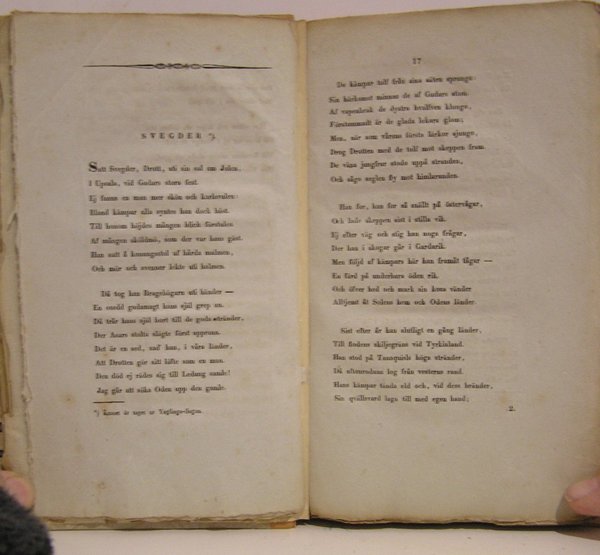 SVEGDER *).
Satt Svegder, Drott, uti sin sal om Julen,
I Upsala, vid Gudars stora fest.
Ej fanns en man mer skön och
Bland kämpar alla syntes han dock bäst.
Till honom höjdes mången blick förstulen
Af mången sköldmö, som der var hans gäst.
Han satt å konungastol af hårda malmen,
Och mör och svenner lekte uti halmen.
Då tog han Bragebägarn uti händer —
En onödd gudamagt hans själ grep an.
Då trår hans själ bort till de goda stränder,
Der Asars stolta slägte först upprann.
Det är en sed, sad' han, i våra länder,
Att Drotten gör sitt löfte som en man.
Den död ej rädes sig till Ledung sande!
Jag går att söka Oden upp den gamle.
*) Ämnet är taget ur Ynglinga-Sagan.
17
De kämpar tolf från sina säten sprungo:
Sin härkomst minnas de af Gudars stam.
Af vapenbrak de dystra hvalfven klungo,
Förstummadt är de glada lekars glam;
Men, när som vårens första lärkor sjungo,
Drog Drotten med de tolf mot skeppen fram.
De väna jungfrur stodo uppå stranden,
Och sågo seglen fly mot himlaranden.
Han for, han for så snällt på östervågar,
Och lade skeppen sist i stilla vik.
Ej efter väg och stig han noga frågar,
Der han i skogar går i Gardarik.
Men följd af kämpars här han framåt tågar —
En färd på underbara öden rik.
Och öfver hed och mark sin kosa vänder
Alltjemt åt Solens hem och Odens länder.
Sist efter år han slutligt en gång länder,
Till fjellens skiljegräns vid Tyrkialand.
Han stod på Tanaquisls höga stränder,
Då aftonrodnan log från vesterns rand.
Hans kämpar tända eld och, vid dess bränder,
Sin qvällsvard laga till med egen hand;
2.